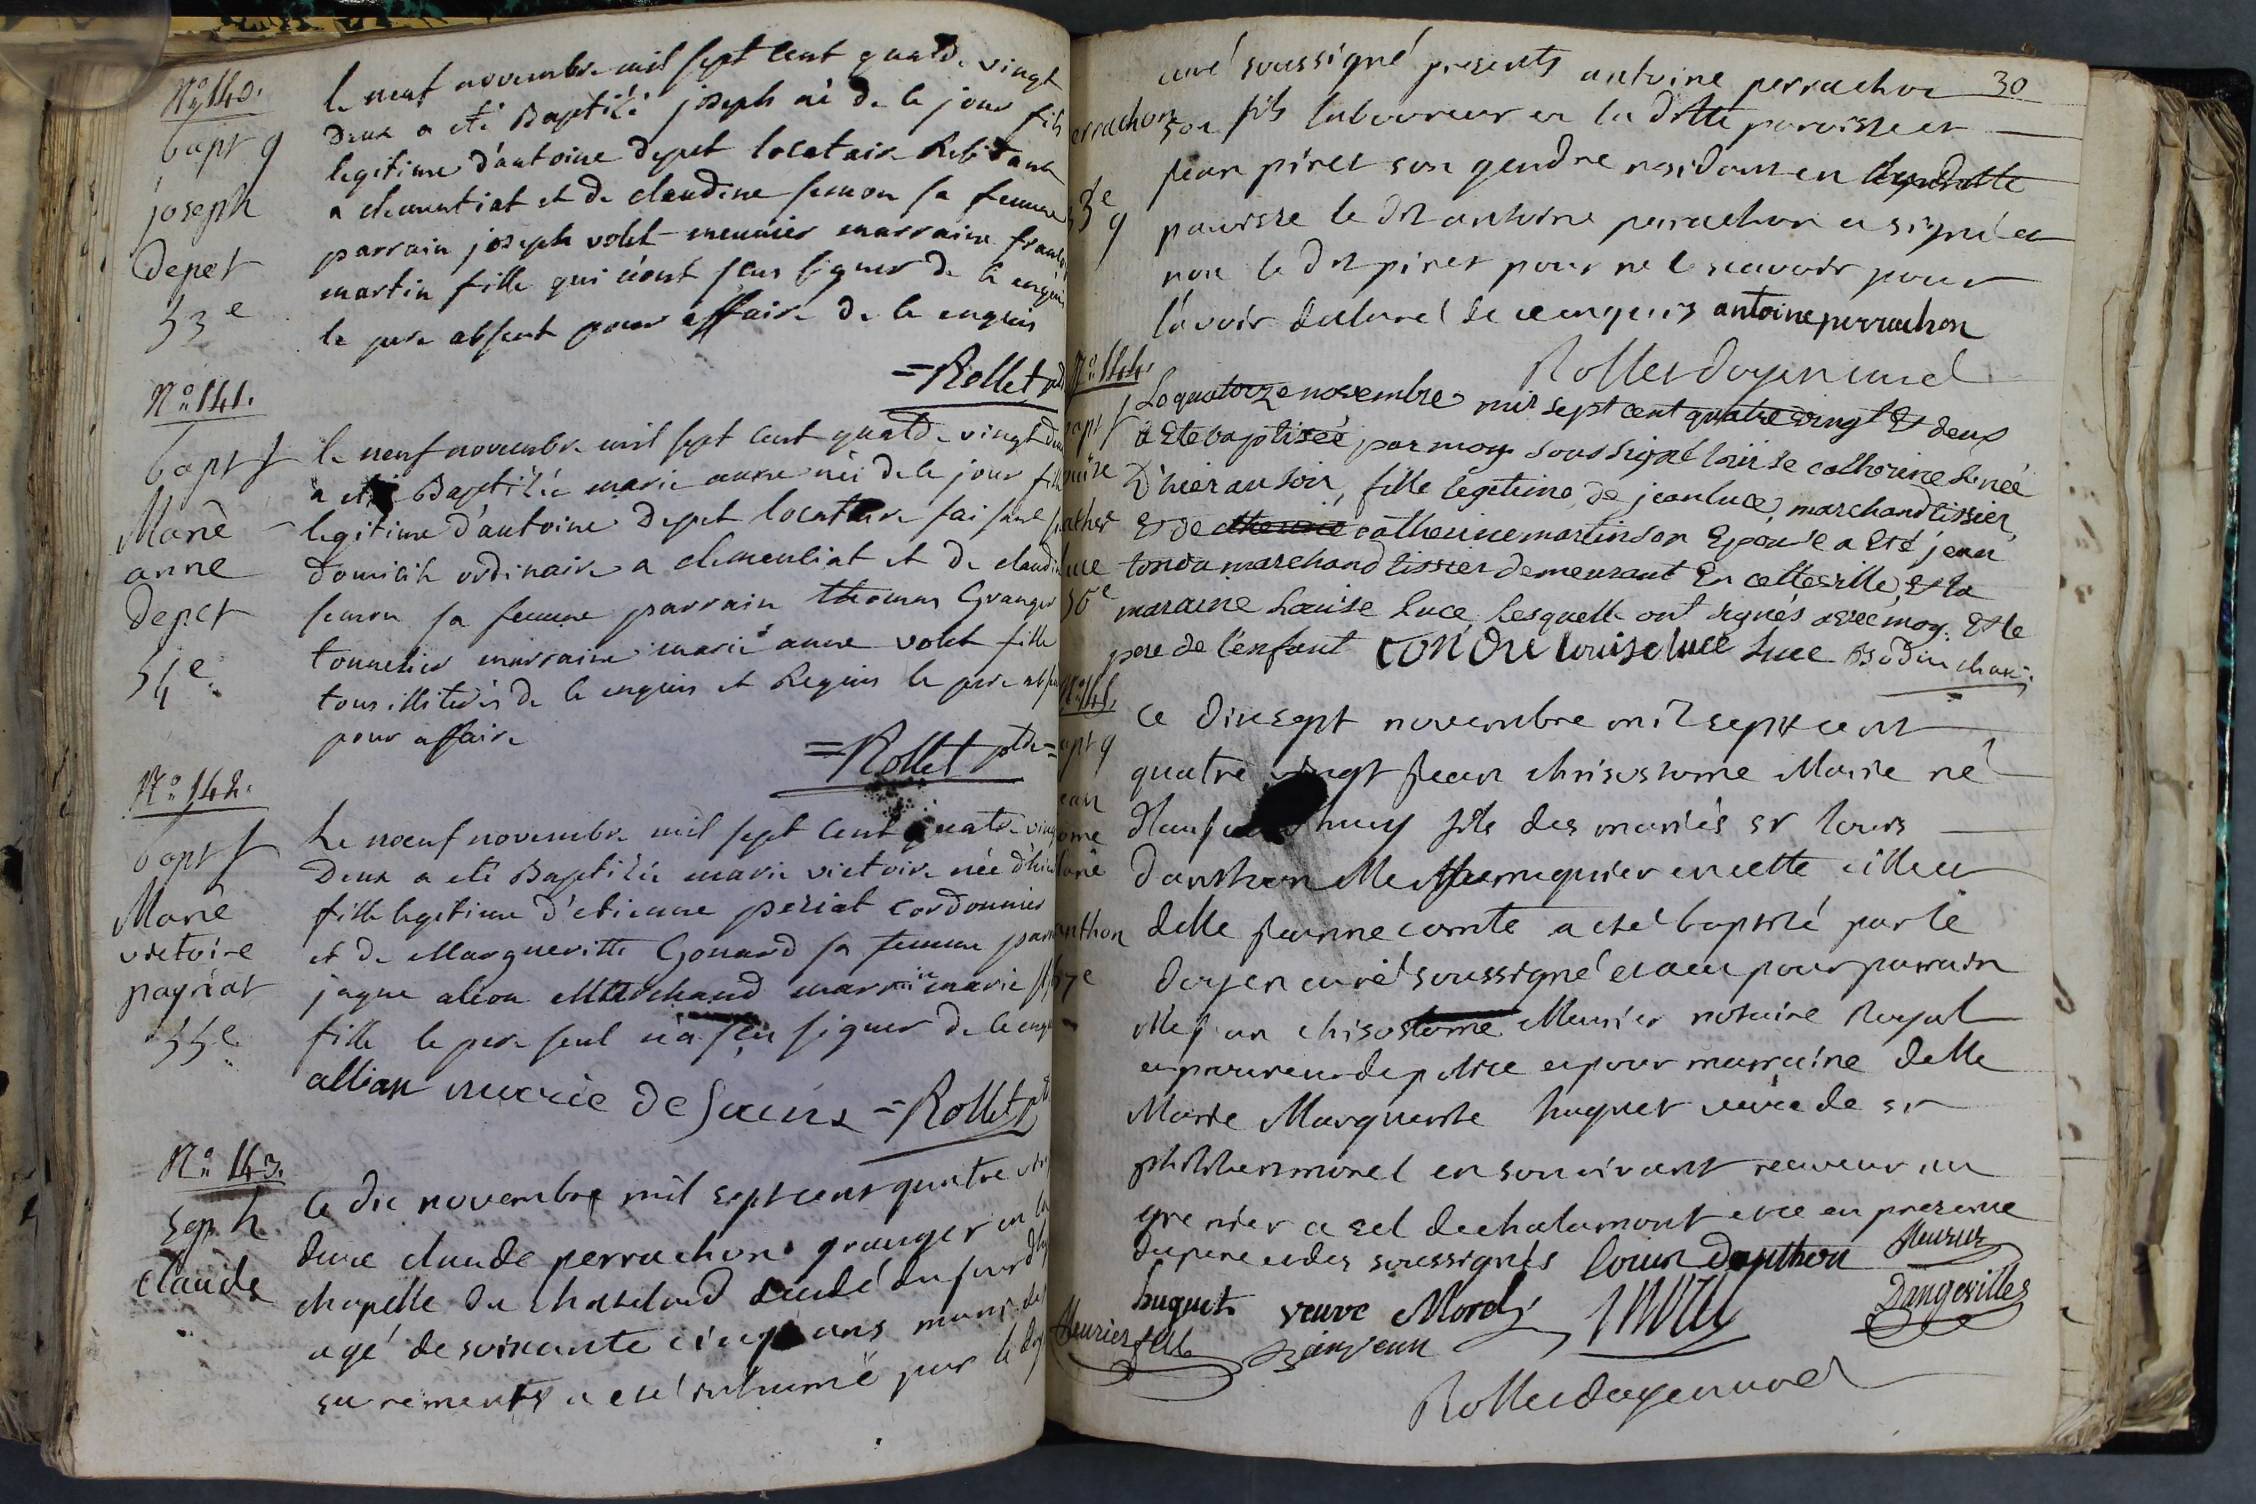 N° 140.
bapt g
joseph
Depet
53e
le neuf novembre mil sept cent quatre vingt
Deux a eté Baptisé joseph né de le jour fils
legitime d'antoine depet locataire
a clementiat et de claudine semon sa femme
parrain joseph volet meunier marraine
martin fille qui n'ont sçu signer de ce enquis
le pere absent pour affaire de ce enquis
=Rollet
N° 141.
bapt f
Marie
anne
Depet
54e
le neuf novembre mil sept cent quatre vingt deux
a eté Baptisée marie anne née de le jour fille
legitime d'antoine depet locataire faisant
domicile ordinaire a clementiat et de claudine
semon sa femme parrain thomas Granger
tonnelier marraine marie anne volet fille
tous illiterés de ce enquis et Requis le pere
pour affaire
=Rollet ptre=
N° 142.
bapt f
Marie
victoire
payriat
55e
Le neuf novembre mil sept cent quatre
Deux a eté Baptisée marie victoire née d'hier
fille legitime d'etienne periat cordonnier
et de Margueritte Gonard sa femme
jaque alion Marchand marraine marie
fille le pere seul n'a sçu signer de ce
allian marie de Sains =Rollet
N° 143.
sep h
claude
Ce dix novembre mil sept cent quatre
deux claude perrachon granger en la
chapelle du chatelard decedé du jour
agé de soixante cinq ans muni
sacrements a eté inhumé par le
30
errachon
53e
g
curé soussigné presents antoine perrachon
son fils laboureur en la ditte paroisse et
jean piret son gendre residant en
paroisse le dit antoine perrachon a signé et
non le dit piret pour ne le scavoir pour
l'avoir declaré de ce enquis antoine perrachon
Rollet doyen curé
N° 144.
bapt f
luce
56e
Le quatorze novembre mil sept cent quatre vingt et deux
a Ete baptisée par moy soussigné loüise catherine née
D'hier au soir, fille legitime de jean luce, marchand tissier
Et de catherine martin son Epouse a Eté jean
tondu marchand tissier demeurant En cette ville, Et la
maraine Louise luce, lesquelle ont signés avec moy. Et le
pere de l'enfant TONDU louise luce luce Bodin
N° 145.
bapt g
jean
anthon
57e
Ce dixsept novembre mil sept cent
quatre vingt jean chrisostome Marie né
d'aujourd'huy fils des mariés sr louis
Danthon Me perruquier en cette ville et
delle jeanne comte a eté baptisé par le
doyen curé soussigné et a eu pour parrain
Me jean chisostome Meurier notaire Royal
et procureur de police et pour marraine delle
Marie Marguerite huguet veuve de sr
philibert morel en son vivant receveur au
grenier a sel de chalamont et ce en presence
du pere et des soussignés louis Danthon Meurier
huguet veuve Morel Dangeville
Meurier fille
Rollet doyen curé